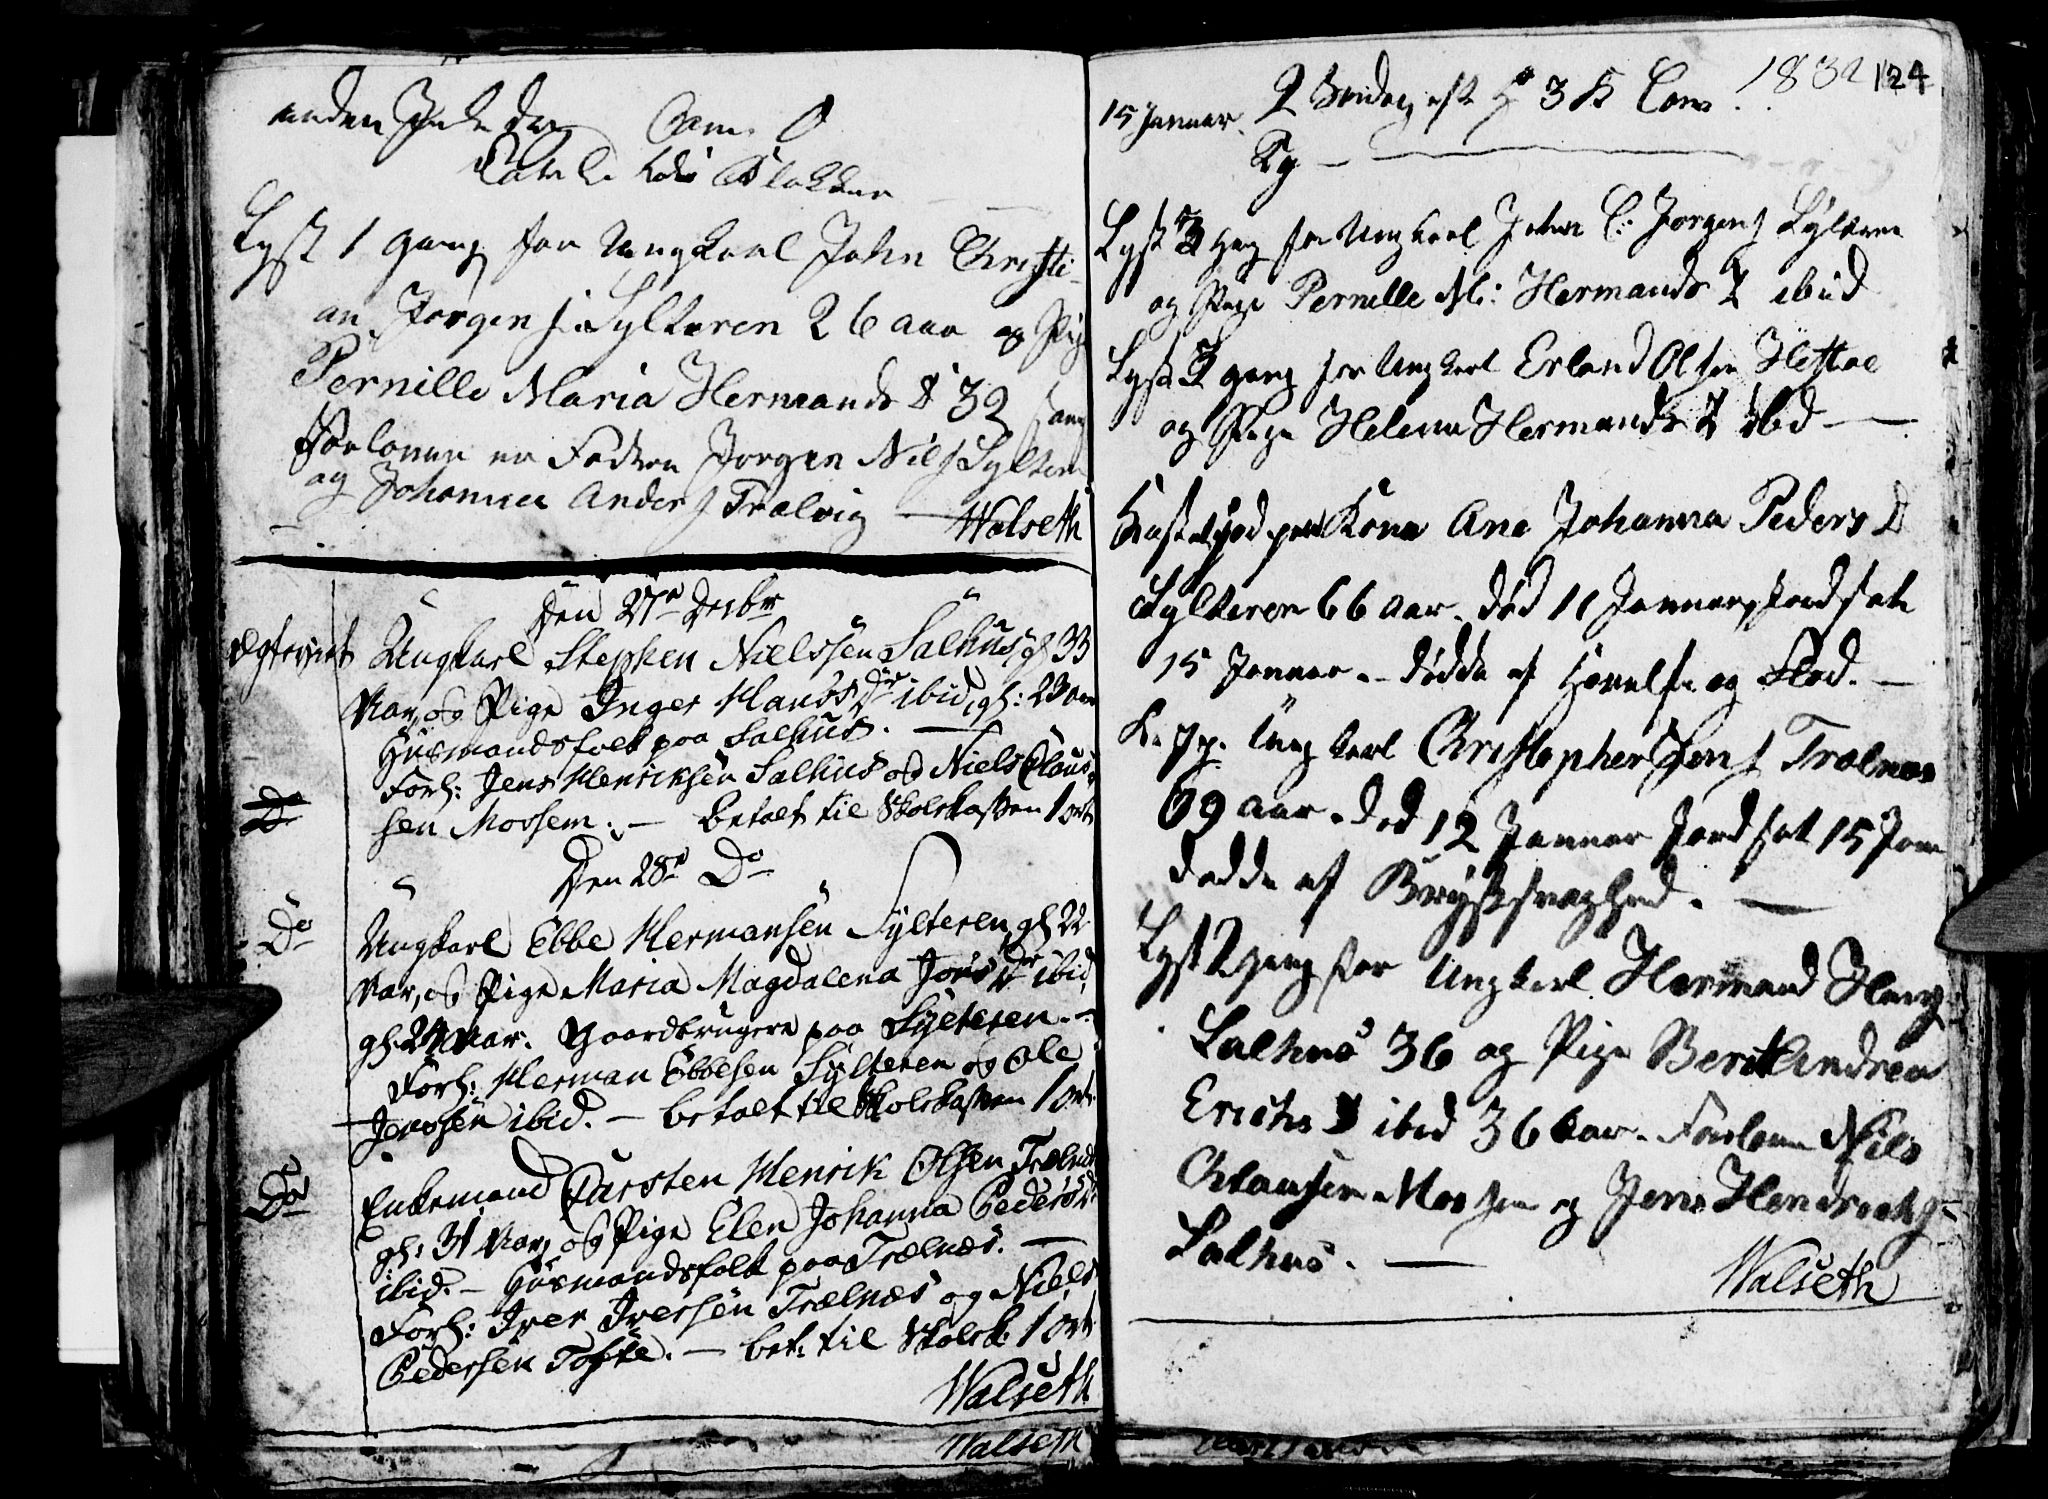 anden Jule dag Com. 0
Lyst 1 gang for Ungkarl John Christi-
an Jørgens: Sylteren 26 aar og Pige
Pernille Maria Hermands D 32 aar
Forlovere er Fadren Jorgen Nils Sylteren
og Johannes Anders Trælvig — Walseth
Den 27de Decbr
ægteviet Ungkarl Stephen Nielssen Salhus, gl 33
Aar, og Pige Inger Hans Dr ibid, gl: 23 aar
Huusmandsfolk paa Salhus. —
Forl: Jens Henriksen Salhus og Niels Claus-
Do sen Mossem. — betalt til Skolekassen 1 ort
Den 28de Do
Do Ungkarl Ebbe Hermansen Sylteren, gl 22
Aar, og Pige Maria Magdalena Jons Dr ibid,
gl. 24 Aar. Gaardbrugere paa Sylteren. —
Forl: Herman Ebbesen Sylteren og Ole
Jenssen ibid. — betalt til Skolekassen 1 ort
Do Enkemand Carsten Henrik Olsen Trælnæs
gl: 31 Aar, og Pige Elen Johanna Peders Dr
ibid. — Huusmandsfolk paa Trælnæs. —
Forl: Iver Iversen Trælnæs og Niels
Pedersen Tofte. — bet: til Skolek 1 ort
Walseth
Walseth
1832 124
15 Januar. 2 Søndag eft H 3 K Com
Lyst 3 gang for Ungkarl John C: Jorgens Sylteren
og Pige Pernille M: Hermands D ibid
Lyst 3 gang for Ungkarl Erland Olsen Hestøe
og Pige Helena Hermands D ibid —
Kastet Jord paa Kone Ane Johanna Peders D
Sylteren 66 aar. død 11 Januar, Jordsat
15 Januar. — dødde af Hævelse og Flod. —
K. Jp. Ungkarl Christopher Jens Trælnæs
69 aar. død 12 Januar Jordsat 15 Jan
dødde af Brystsvaghed. —
Lyst 2 gang for Ungkarl Hermand Hans
Salhus 36 og Pige Berit Andrea
Erichs D ibid 36 aar. Forlovere Nils
Clausen Mossem og Jens Hendrichs
Salhus. —
Walseth